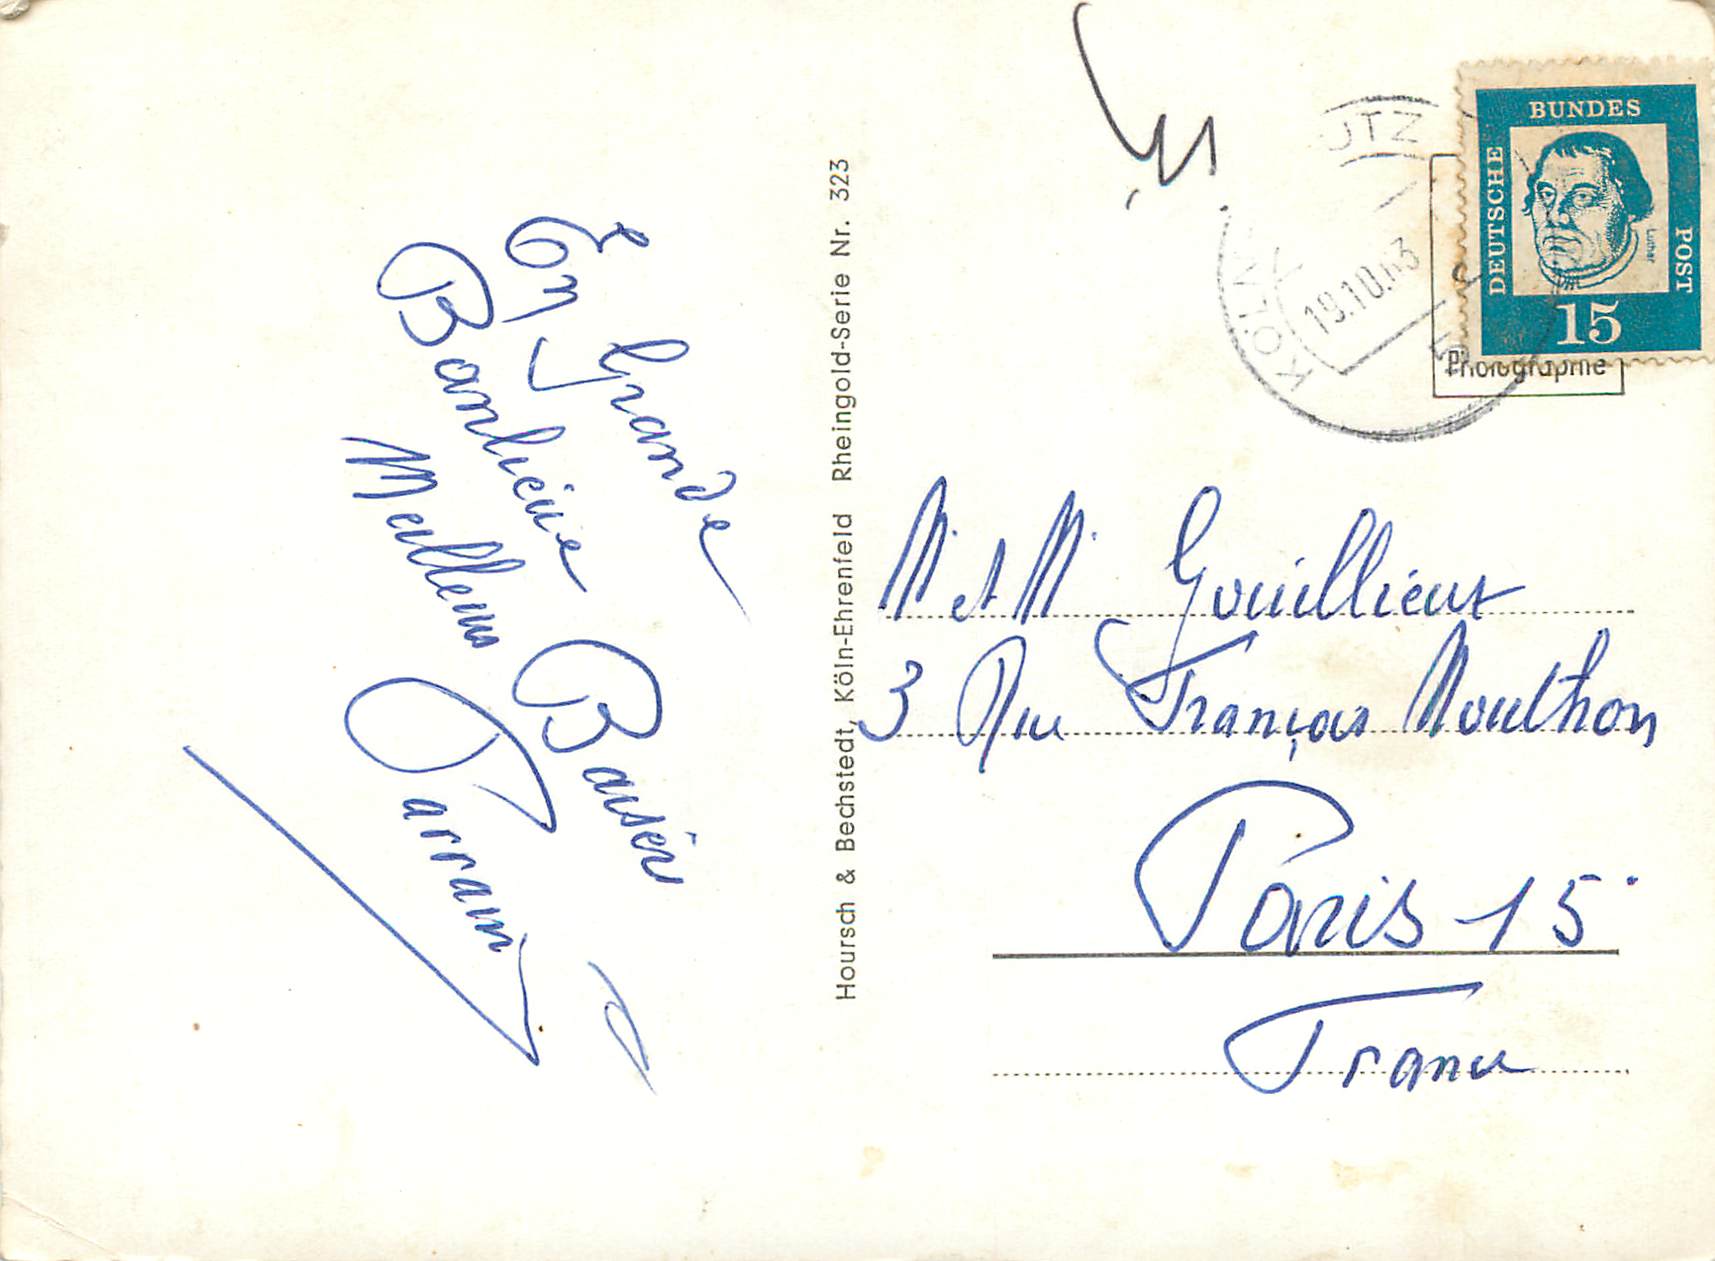 En grande
Banlieue Baisér
Meilleurs
Parrain
Hoursch & Bechstedt, Köln-Ehrenfeld Rheingold-Serie Nr. 323
DEUTSCHE
BUNDES
POST
Luther
15
KÖLN
UTZ
19.10.63
Photographie
M. et M. Gouillieux
3 Rue François Mouthon
Paris 15
France